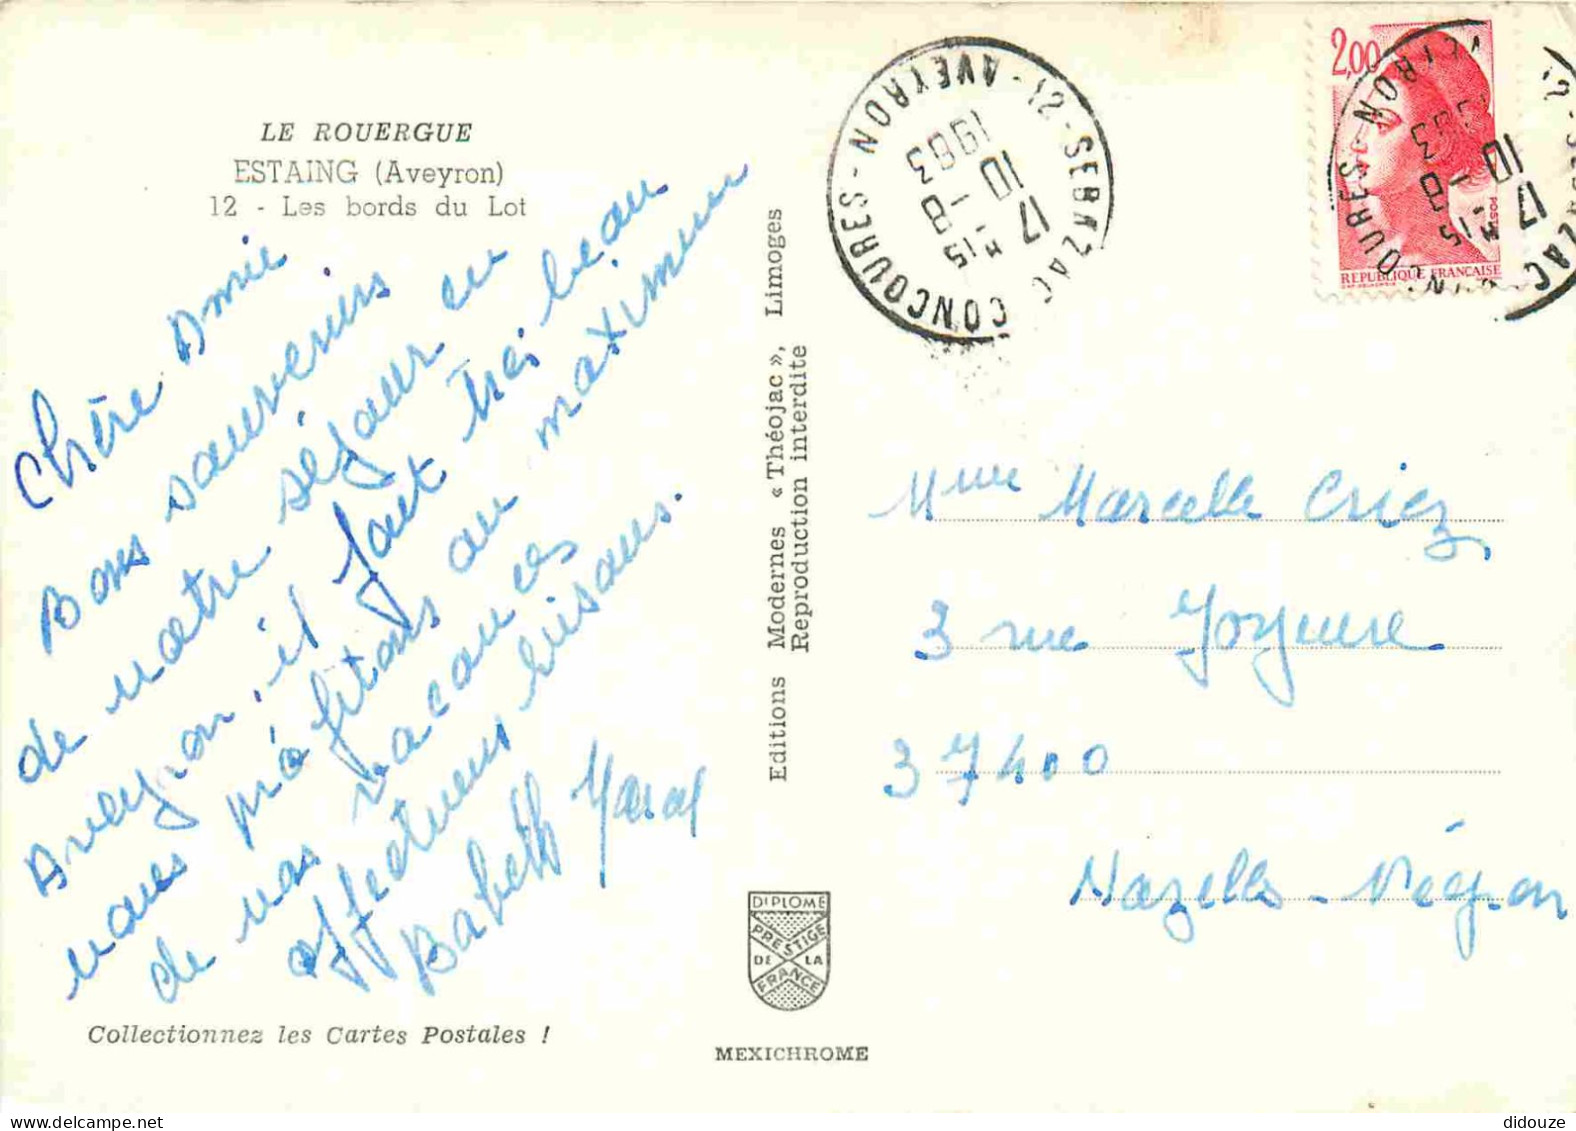 LE ROUERGUE
ESTAING (Aveyron)
12 - Les bords du Lot
Chère Amie
Bons souvenirs
de notre séjour en
Aveyron, il fait très beau
nous profitons au maximum
de nos vacances
affectueux bisous.
Babeth Marcel
Collectionnez les Cartes Postales !
Editions Modernes « Théojac », Limoges
Reproduction interdite
DIPLOME
PRESTIGE
DE LA
FRANCE
MEXICHROME
12 - SEBAZAC CONCOURES - AVEYRON -
17 H 15
10 - 8
1983
2,00
POSTES
REPUBLIQUE FRANCAISE
Mme Marcelle Criez
3 rue Joyeuse
37400
Nazelles - Négron
didouze